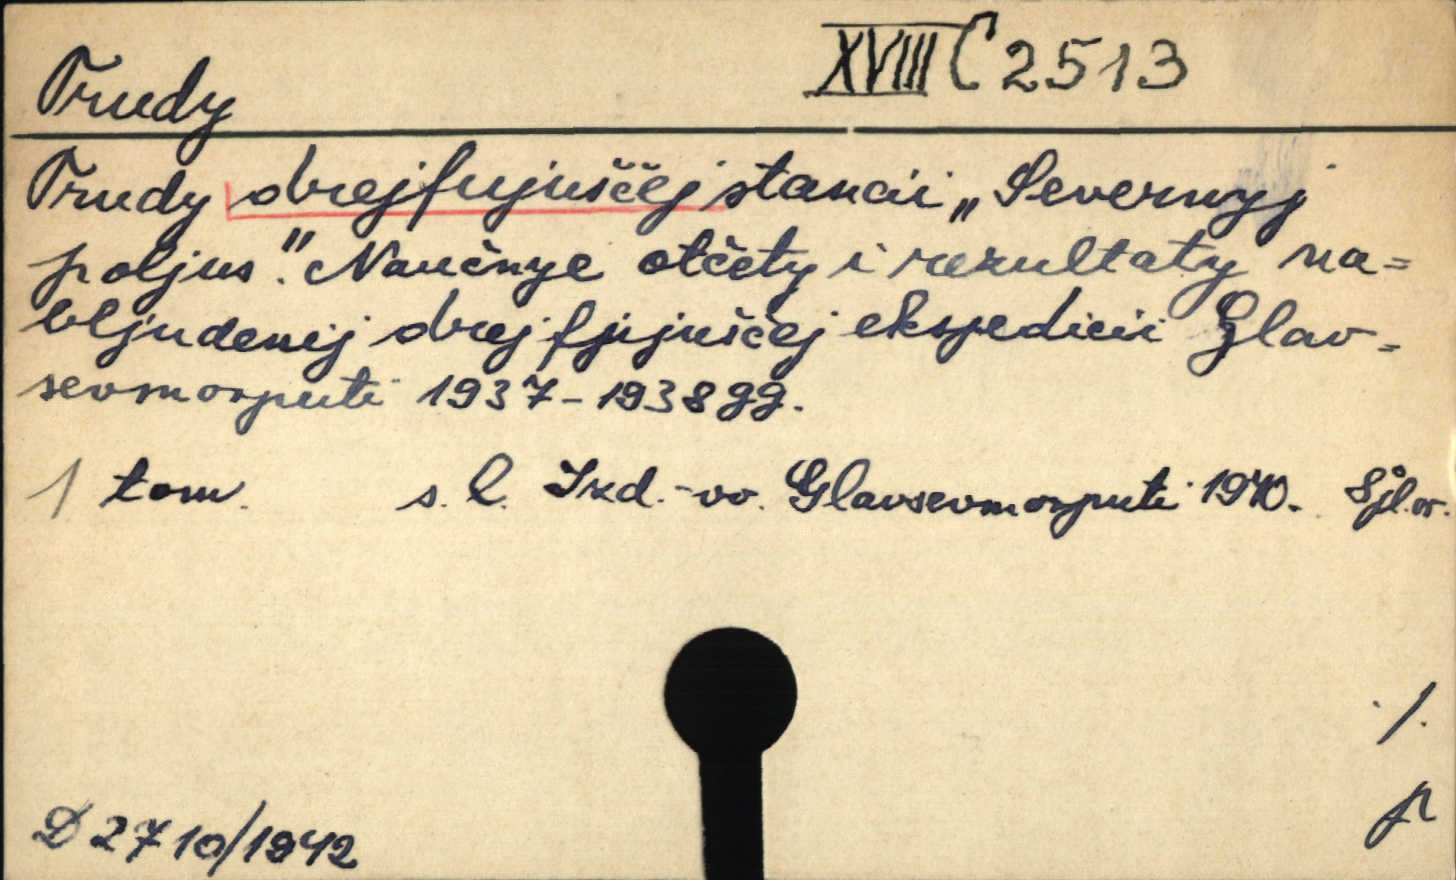 XVIII C 2513
Trudy
Trudy drejfujuščej stancii „Severnyj
poljus". Naučnye otčety i rezultaty na=
bljudenij drejfjujuščej ekspedicii Glav=
sevmorputi 1937-1938 gg.
1 tom. s. l. Izd.-vo. Glavsevmorputi 1940.
./.
D 2710/1942